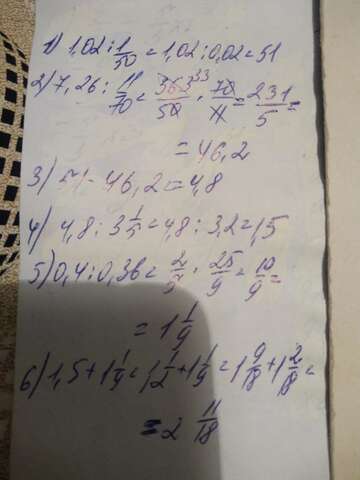 1) 1,02 : 1/50 = 1,02 : 0,02 = 51
2) 7,26 : 11/70 = 363 33/50 · 70/11 = 231/5 =
= 46,2
3) 51 - 46,2 = 4,8
4) 4,8 : 3 1/5 = 4,8 : 3,2 = 1,5
5) 0,4 : 0,36 = 2/5 · 25/9 = 10/9 =
= 1 1/9
6) 1,5 + 1 1/9 = 1 1/2 + 1 1/9 = 1 9/18 + 1 2/18 =
= 2 11/18